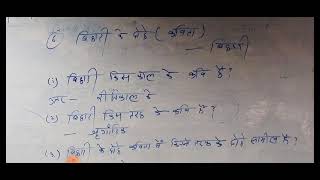 6 बिहारी के दोहे ( कविता )
— बिहारी
(1) बिहारी किस काल के कवि हैं ?
उत्तर - रीतिकाल के
(2) बिहारी किस तरह के कवि हैं ?
- श्रृंगारिक
(3) बिहारी के दोहे कविता में किस तरह के दोहे शामिल है ?